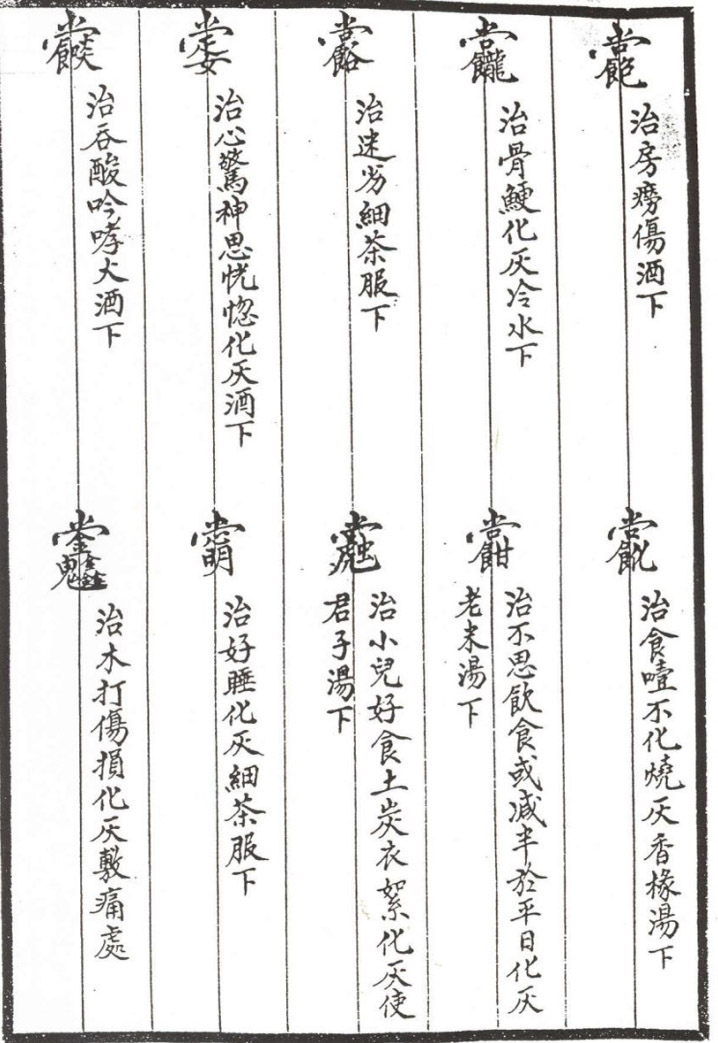 治房癆傷酒下
治食噎不化燒灰香椽湯下
治骨鯁化灰冷水下
治不思飲食或減半於平日化灰
老米湯下
治迷劣細茶服下
治小兒好食土炭衣絮化灰使
君子湯下
治心驚神思恍惚化灰酒下
治好睡化灰細茶服下
治吞酸吟哮酒下
治木打傷損化灰敷痛處